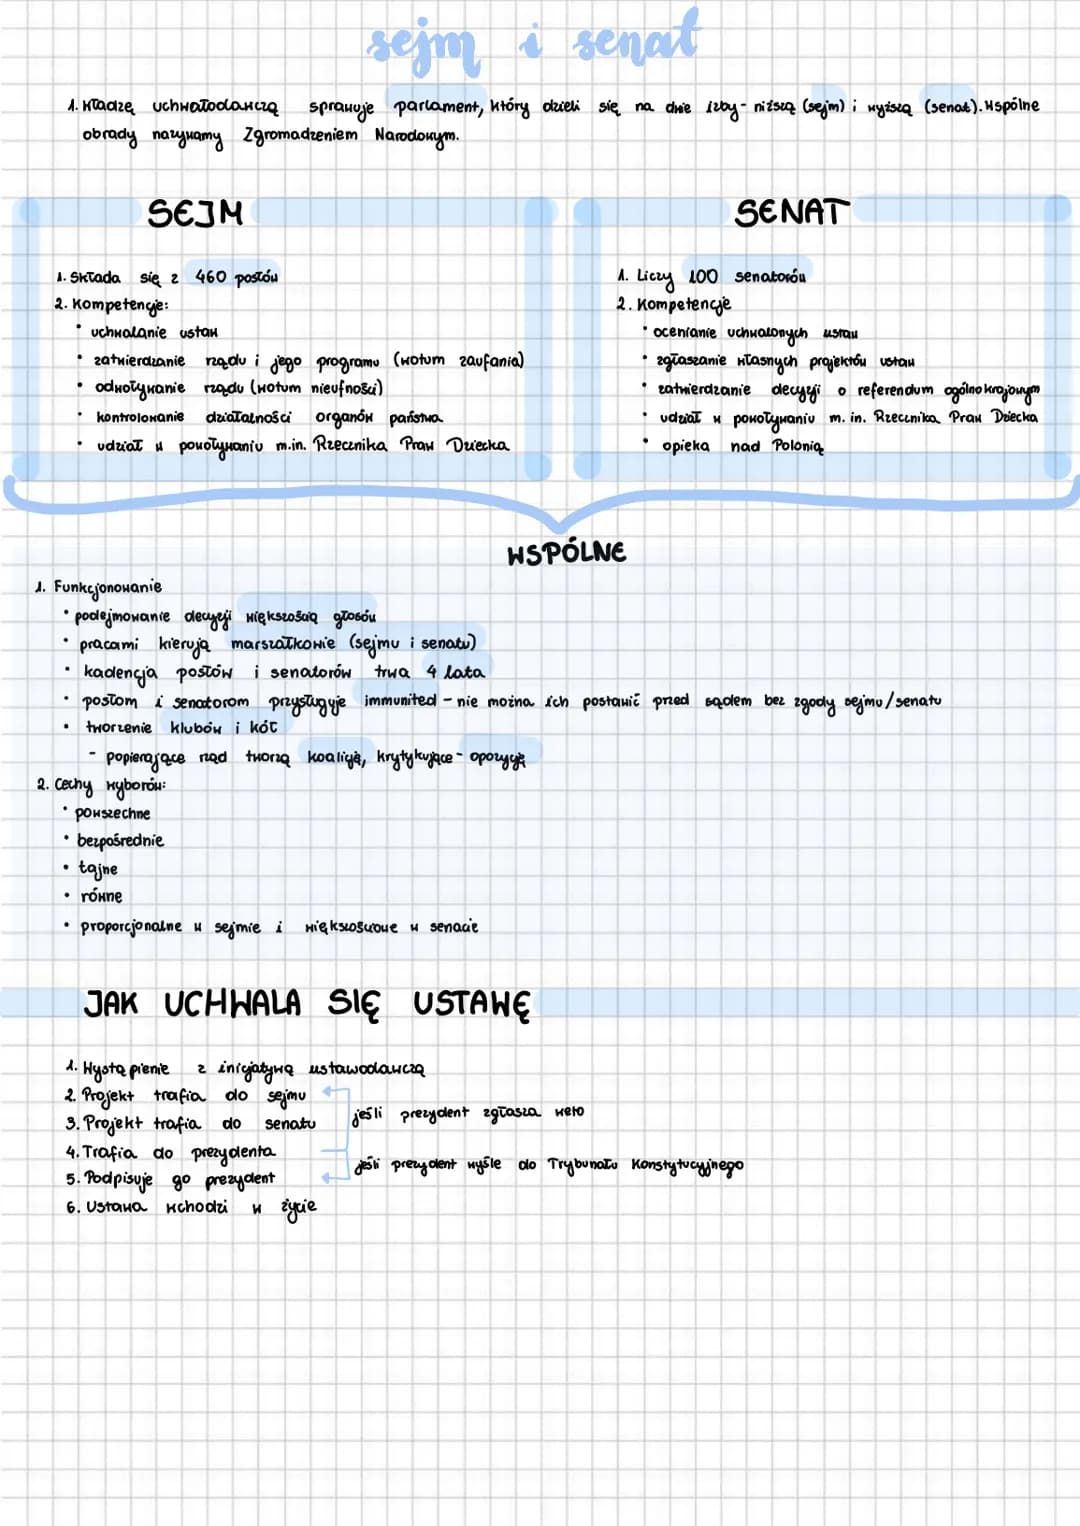 sejm i senat
1. Władzę uchwałodawczą sprawuje parlament, który dzieli się na dwie izby - niższą (sejm) i wyższą (senat). Wspólne
obrady nazywamy Zgromadzeniem Narodowym.
SEJM
1. Składa się z 460 posłów
2. Kompetencje:
• uchwalanie ustaw
• zatwierdzanie rządu i jego programu (wotum zaufania)
• odwoływanie rządu (wotum nieufności)
• kontrolowanie działalności organów państwa
• udział w powoływaniu m.in. Rzecznika Praw Dziecka
SENAT
1. Liczy 100 senatorów
2. Kompetencje
• ocenianie uchwalonych ustaw
• zgłaszanie własnych projektów ustaw
• zatwierdzanie decyzji o referendum ogólnokrajowym
• udział w powoływaniu m. in. Rzecznika Praw Dziecka
• opieka nad Polonią
WSPÓLNE
1. Funkcjonowanie
• podejmowanie decyzji większością głosów
• pracami kierują marszałkowie (sejmu i senatu)
• kadencja posłów i senatorów trwa 4 lata
• posłom i senatorom przysługuje immunited - nie można ich postawić przed sądem bez zgody sejmu/senatu
• tworzenie klubów i kół
- popierające rząd tworzą koalicję, krytykujące - opozycję
2. Cechy wyborów:
• powszechne
• bezpośrednie
• tajne
• równe
• proporcjonalne w sejmie i większościowe w senacie
JAK UCHWALA SIĘ USTAWĘ
1. Wystąpienie z inicjatywą ustawodawczą
2. Projekt trafia do sejmu
jeśli prezydent zgłasza weto
3. Projekt trafia do senatu
4. Trafia do prezydenta
jeśli prezydent wyśle do Trybunału Konstytucyjnego
5. Podpisuje go prezydent
6. Ustawa wchodzi w życie